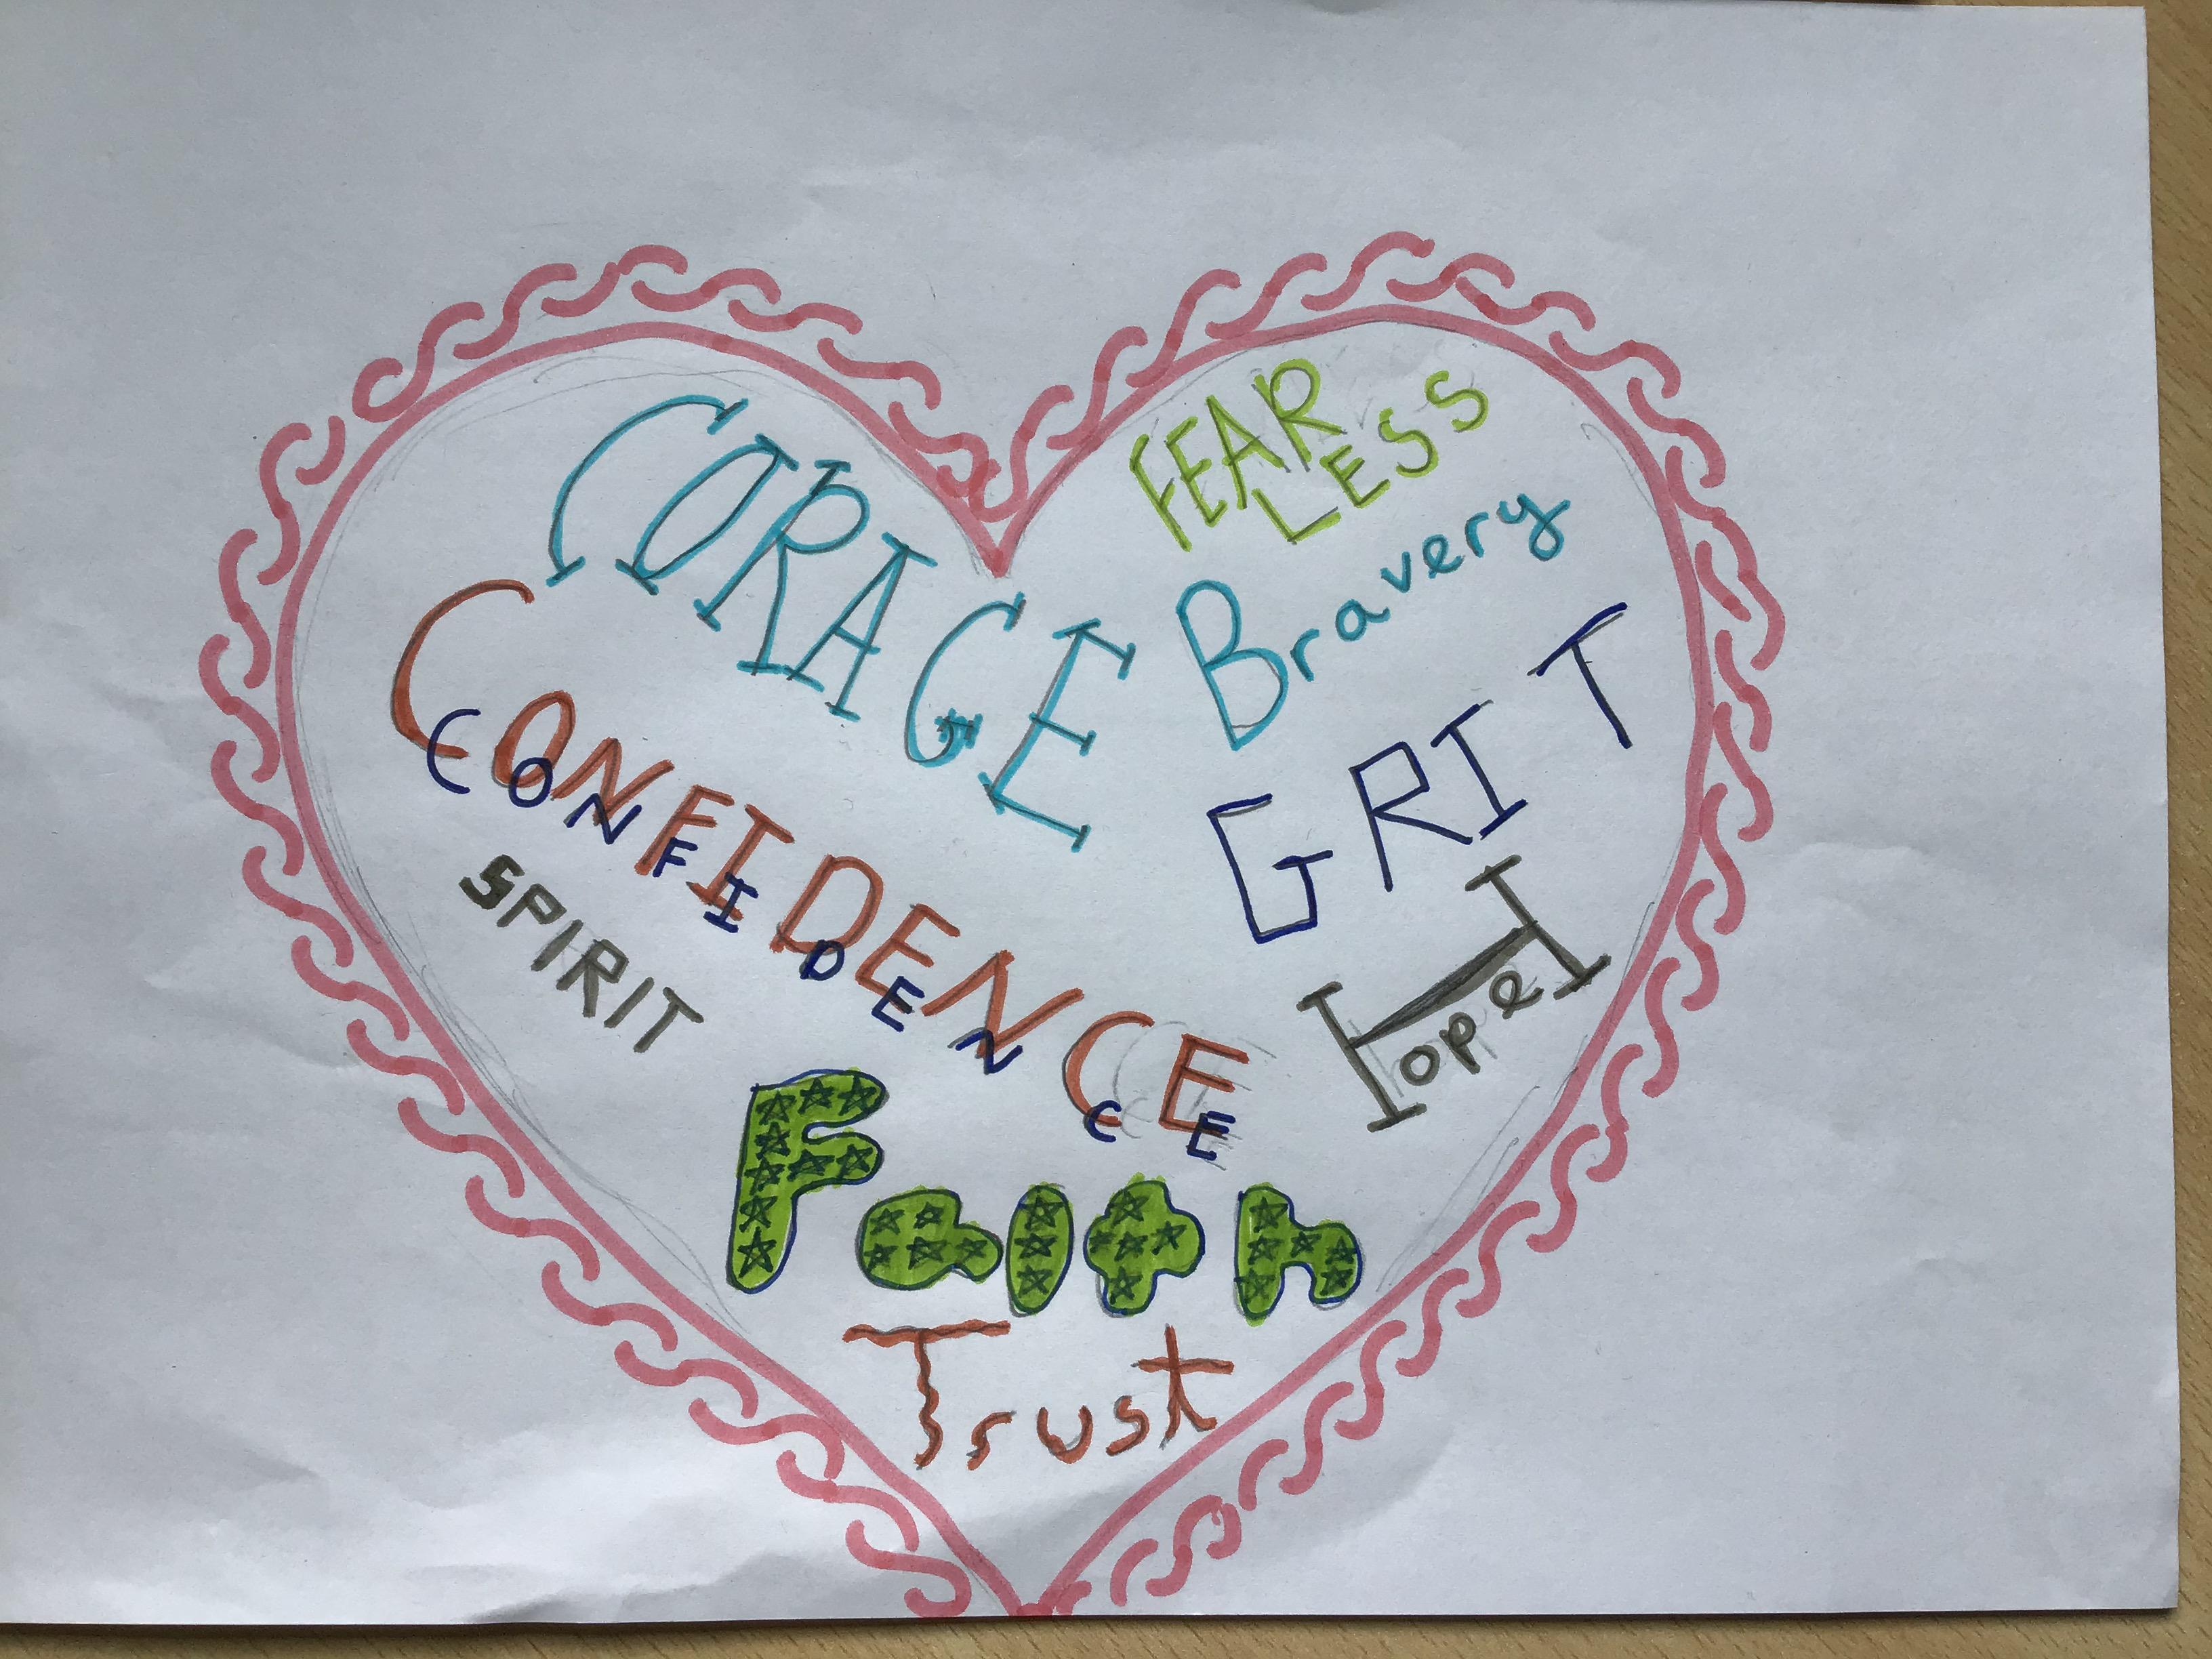 CORAGE
FEAR
LESS
Bravery
CONFIDENCE
CONFIDENCE
GRIT
SPIRIT
Hope
Faith
Trust